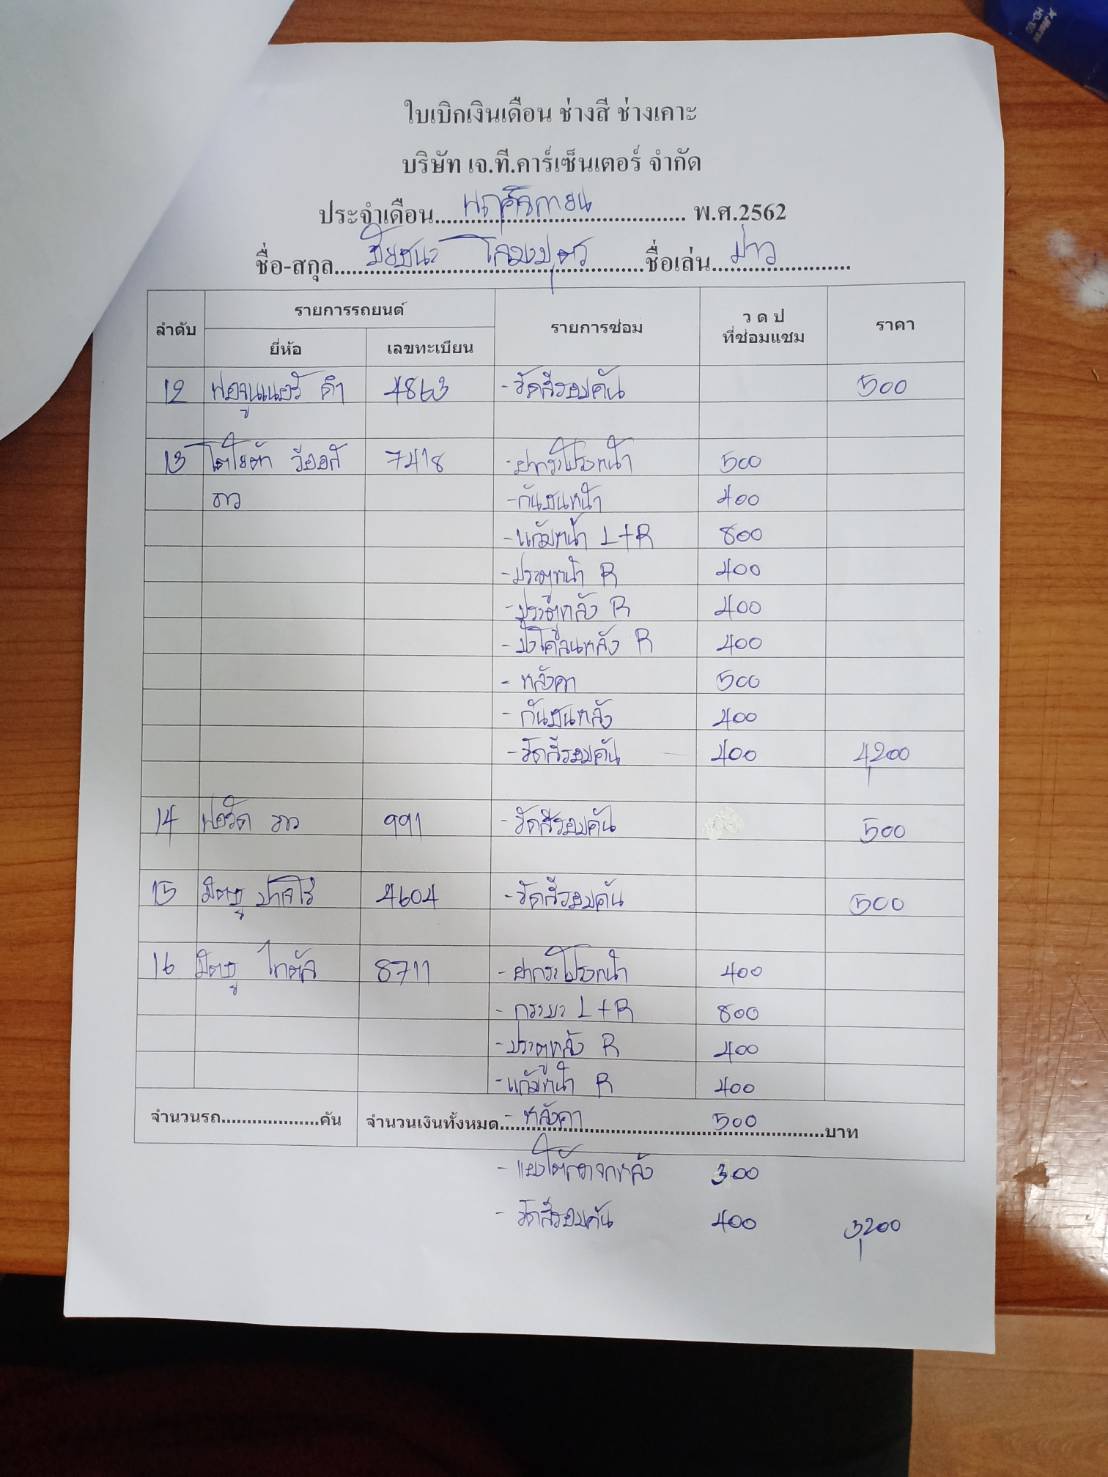 ใบเบิกเงินเดือน ช่างสี ช่างเคาะ
บริษัท เจ.ที.คาร์เซ็นเตอร์ จำกัด
ประจำเดือน....พฤศจิกายน.... พ.ศ.2562
ชื่อ-สกุล....ชัยชนะ....ชื่อเล่น....ปาว....
ลำดับ รายการรถยนต์ รายการซ่อม ว ด ป ที่ซ่อมแซม ราคา
ยี่ห้อ เลขทะเบียน
12 ฟอจูนเนอร์ ดำ 4863 - ขัดสีรอบคัน 500
13 โตโยต้า วีออส 7418 - ฝากระโปรงหน้า 500
ขาว - กันชนหน้า 400
- แก้มหน้า L+R 800
- ประตูหน้า R 400
- ประตูหลัง R 400
- บังโคลนหลัง R 400
- หลังคา 500
- กันชนหลัง 400
- ขัดสีรอบคัน 400 4,200
14 ฟอร์ด ขาว 991 - ขัดสีรอบคัน 500
15 มิตซู ปาเจโร่ 4604 - ขัดสีรอบคัน 500
16 มิตซู ไทตัล 8711 - ฝากระโปรงหน้า 400
- กระบะ L+R 800
- ประตูหลัง R 400
- แก้มหน้า R 400
จำนวนรถ....................คัน จำนวนเงินทั้งหมด....- หลังคา 500....บาท
- แผงใต้กระจกหลัง 300
- ขัดสีรอบคัน 400 3,200